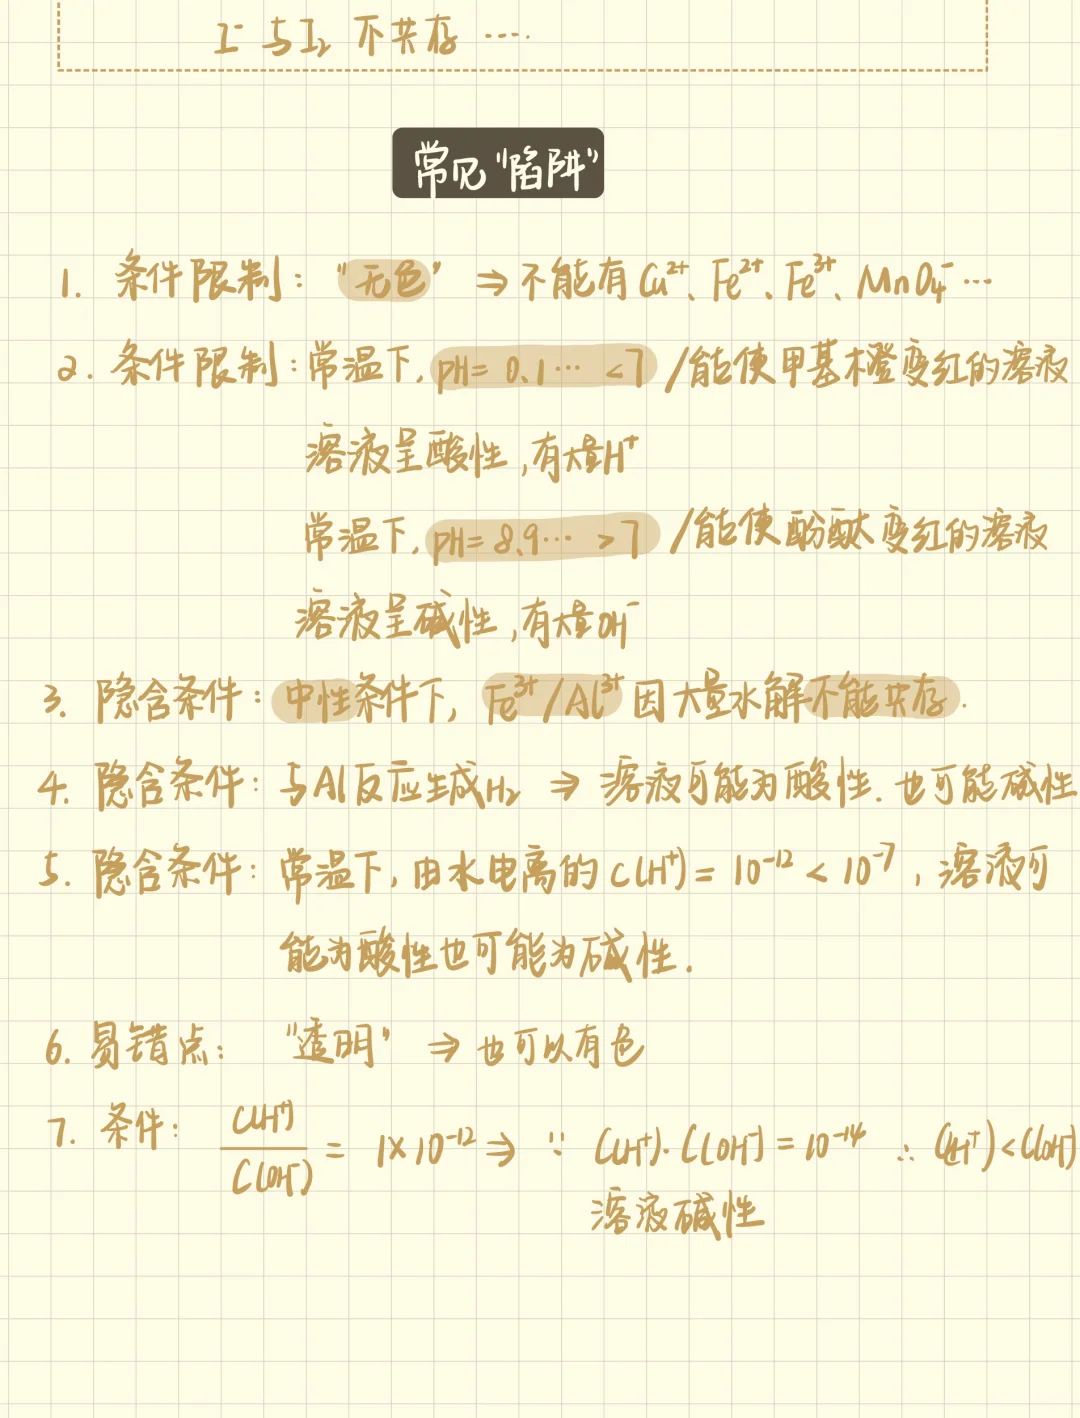 I⁻与I₂ 不共存 ····
常见“陷阱”
1. 条件限制："无色" ⇒ 不能有Cu²⁺、Fe²⁺、Fe³⁺、MnO₄⁻ ···
2. 条件限制：常温下, pH= 0.1··· <7 /能使甲基橙变红的溶液
溶液呈酸性,有大量H⁺
常温下, pH= 8.9··· >7 /能使酚酞变红的溶液
溶液呈碱性,有大量OH⁻
3. 隐含条件：中性条件下, Fe³⁺/Al³⁺ 因大量水解不能共存.
4. 隐含条件：与Al反应生成H₂ ⇒ 溶液可能为酸性.也可能碱性
5. 隐含条件：常温下, 由水电离的C(H⁺)= 10⁻¹² < 10⁻⁷, 溶液可
能为酸性也可能为碱性.
6. 易错点： "透明" ⇒ 也可以有色
7. 条件： C(H⁺)/C(OH⁻) = 1×10⁻¹² ⇒ ∵ C(H⁺)·C(OH⁻)=10⁻¹⁴ ∴ C(H⁺)<C(OH⁻)
溶液碱性